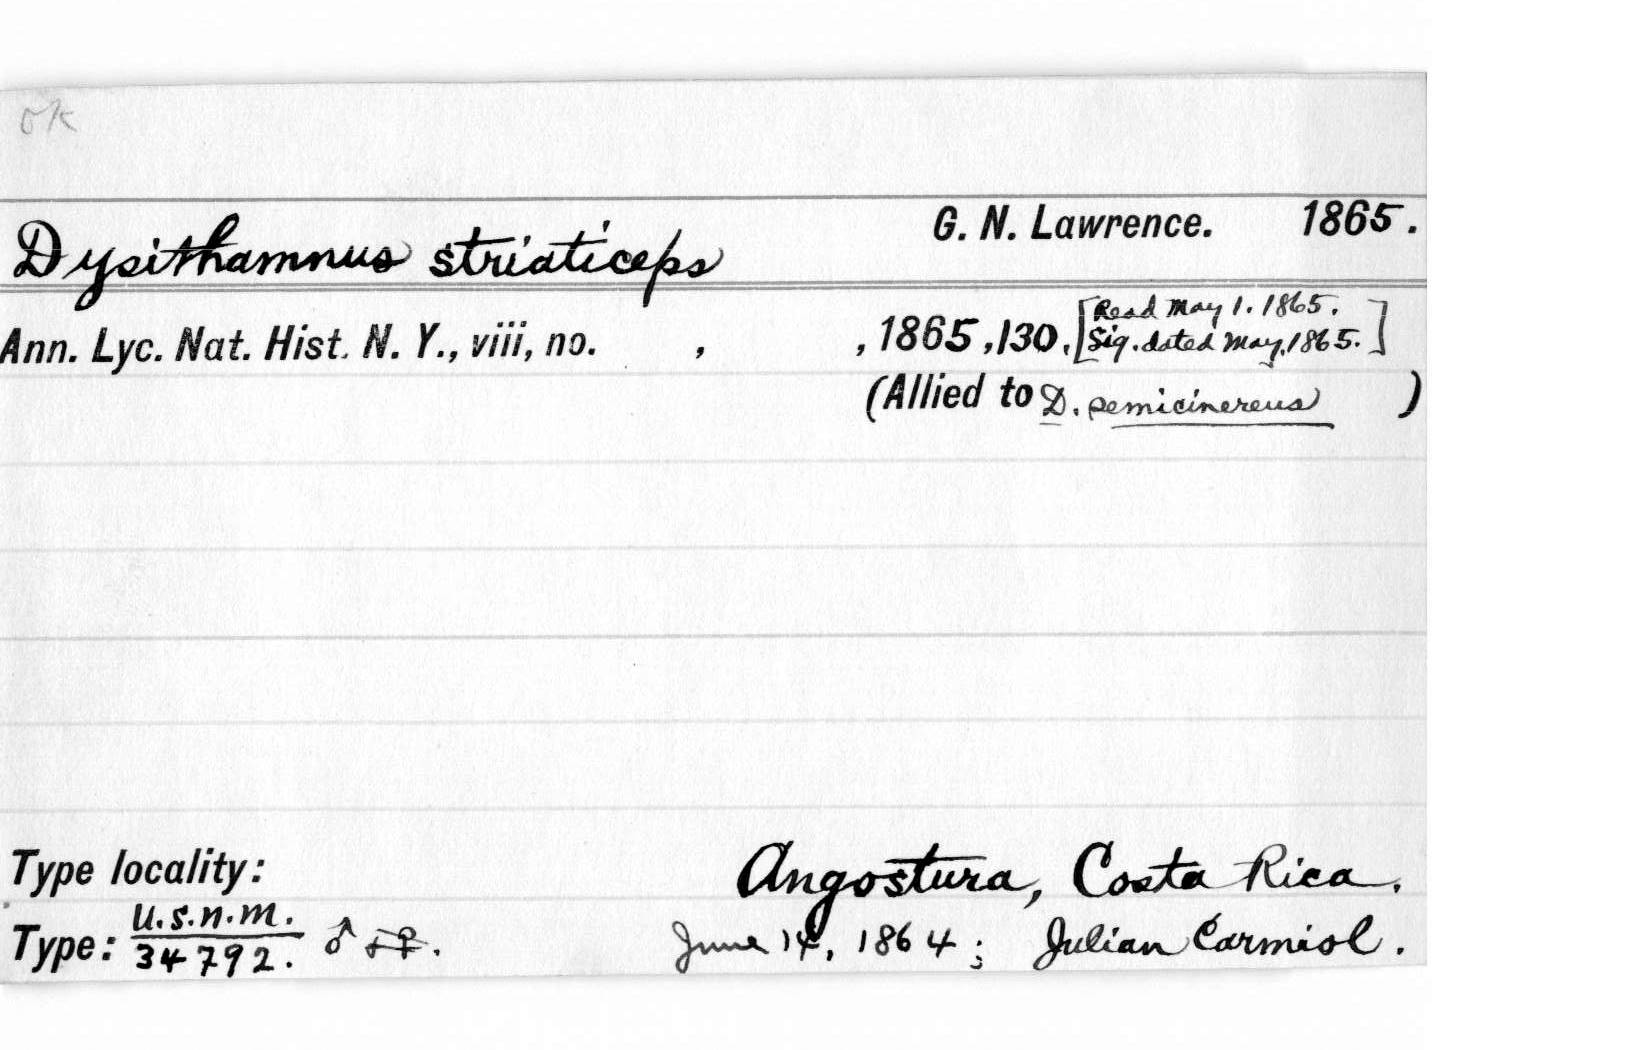 ok
G. N. Lawrence. 1865.
Dysithamnus striaticeps
Ann. Lyc. Nat. Hist. N. Y., viii, no. , , 1865, 130. [Read May 1. 1865.
Sig. dated May, 1865.]
(Allied to D. semicinereus )
Type locality: Angostura, Costa Rica.
Type: U.S.N.M. 34792. ♂ ♀. June 14, 1864; Julian Carmiol.